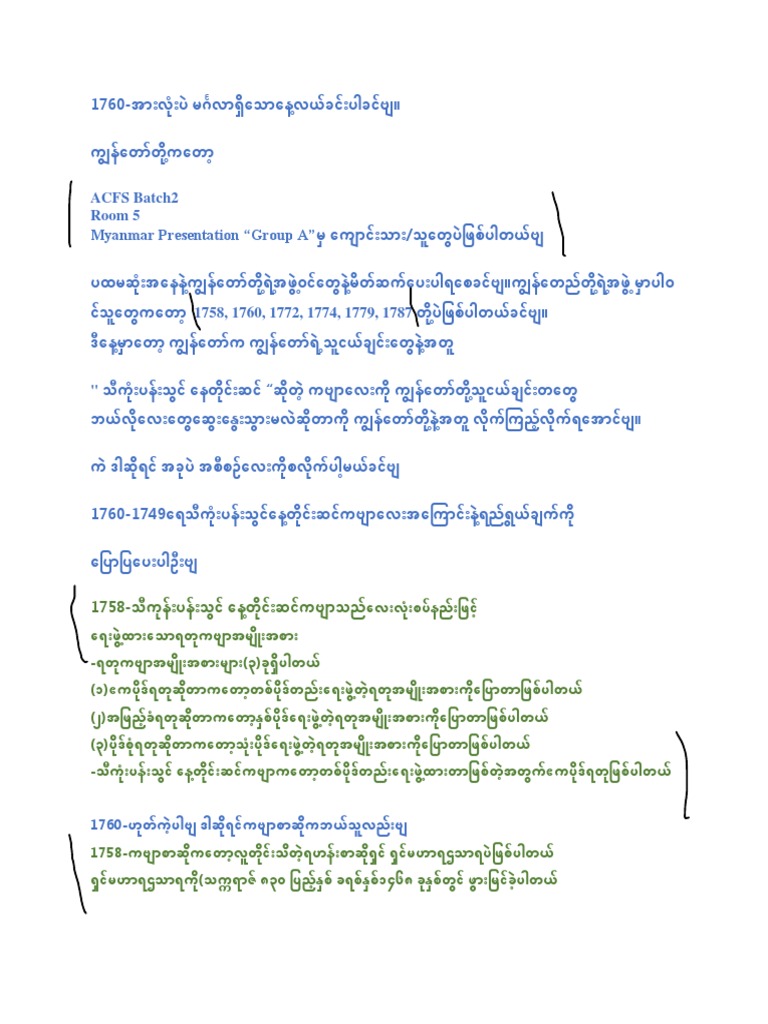 1760-အားလုံးပဲ မင်္ဂလာရှိသောနေ့လယ်ခင်းပါခင်ဗျ။
ကျွန်တော်တို့ကတော့
ACFS Batch2
Room 5
Myanmar Presentation “Group A”မှ ကျောင်းသား/သူတွေပဲဖြစ်ပါတယ်ဗျ
ပထမဆုံးအနေနဲ့ကျွန်တော်တို့ရဲ့အဖွဲ့ဝင်တွေနဲ့မိတ်ဆက်ပေးပါရစေခင်ဗျ။ကျွန်တေည်တို့ရဲ့အဖွဲ့ မှာပါဝ
င်သူတွေကတော့ 1758, 1760, 1772, 1774, 1779, 1787 တို့ပဲဖြစ်ပါတယ်ခင်ဗျ။
ဒီနေ့မှာတော့ ကျွန်တော်က ကျွန်တော်ရဲ့သူငယ်ချင်းတွေနဲ့အတူ
" သီကုံးပန်းသွင် နေတိုင်းဆင် “ဆိုတဲ့ ကဗျာလေးကို ကျွန်တော်တို့သူငယ်ချင်းတတွေ
ဘယ်လိုလေးတွေဆွေးနွေးသွားမလဲဆိုတာကို ကျွန်တော်တို့နဲ့အတူ လိုက်ကြည့်လိုက်ရအောင်ဗျ။
ကဲ ဒါဆိုရင် အခုပဲ အစီစဉ်လေးကိုစလိုက်ပါ့မယ်ခင်ဗျ
1760-1749ရေသီကုံးပန်းသွင်နေ့တိုင်းဆင်ကဗျာလေးအကြောင်းနဲ့ရည်ရွယ်ချက်ကို
ပြောပြပေးပါဦးဗျ
1758-သီကုန်းပန်းသွင် နေ့တိုင်းဆင်ကဗျာသည်လေးလုံးစပ်နည်းဖြင့်
ရေးဖွဲ့ထားသောရတုကဗျာအမျိုးအစား
-ရတုကဗျာအမျိုးအစားများ(၃)ခုရှိပါတယ်
(၁)ဧကပိုဒ်ရတုဆိုတာကတော့တစ်ပိုဒ်တည်းရေးဖွဲ့တဲ့ရတုအမျိုးအစားကိုပြောတာဖြစ်ပါတယ်
(၂)အဖြည့်ခံရတုဆိုတာကတော့နှစ်ပိုဒ်ရေးဖွဲ့တဲ့ရတုအမျိုးအစားကိုပြောတာဖြစ်ပါတယ်
(၃)ပိုဒ်စုံရတုဆိုတာကတော့သုံးပိုဒ်ရေးဖွဲ့တဲ့ရတုအမျိုးအစားကိုပြောတာဖြစ်ပါတယ်
-သီကုံးပန်းသွင် နေ့တိုင်းဆင်ကဗျာကတော့တစ်ပိုဒ်တည်းရေးဖွဲ့ထားတာဖြစ်တဲ့အတွက်ဧကပိုဒ်ရတုဖြစ်ပါတယ်
1760-ဟုတ်ကဲ့ပါဗျ ဒါဆိုရင်ကဗျာစာဆိုကဘယ်သူလည်းဗျ
1758-ကဗျာစာဆိုကတော့လူတိုင်းသိတဲ့ရဟန်းစာဆိုရှင် ရှင်မဟာရဋ္ဌသာရပဲဖြစ်ပါတယ်
ရှင်မဟာရဋ္ဌသာရကို(သက္ကရာဇ် ၈၃၀ ပြည့်နှစ် ခရစ်နှစ်၁၄၆၈ ခုနှစ်တွင် ဖွားမြင်ခဲ့ပါတယ်